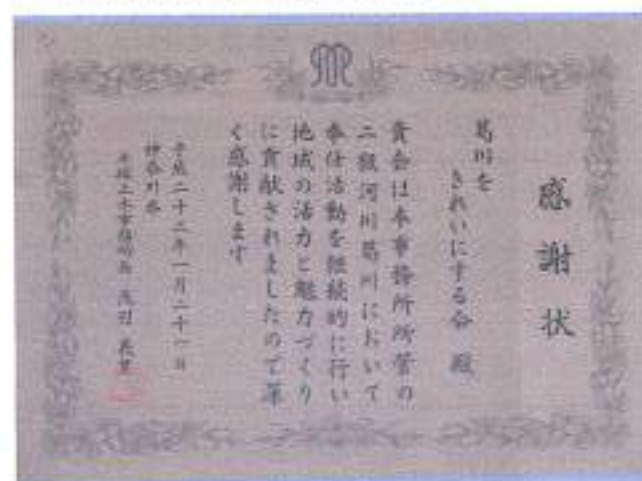 感謝状
葛川を
きれいにする会 殿
貴会は本事務所所管の
二級河川葛川において
奉仕活動を継続的に行い
地域の活力と魅力づくり
に貢献されましたので深
く感謝します
平成二十二年一月二十一日
神奈川県
平塚土木事務所長